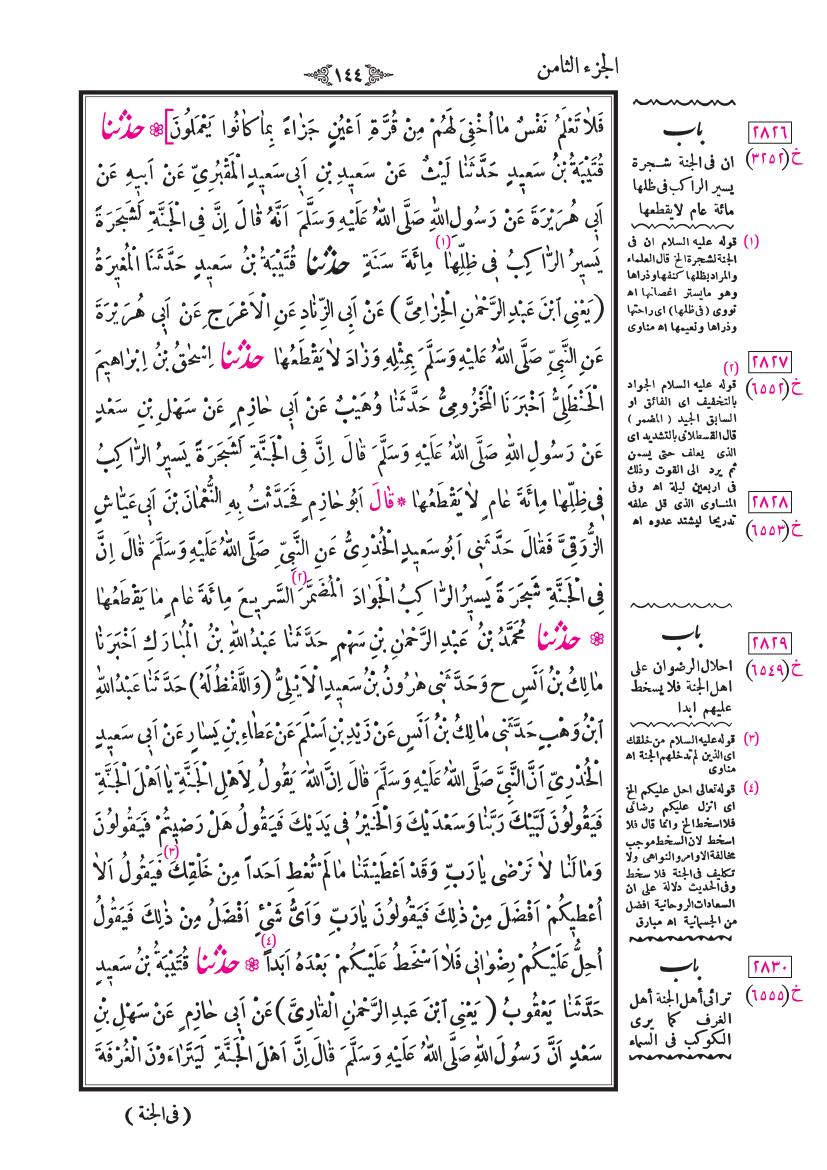 الجزء الثامن
١٤٤
فَلَا تَعْلَمُ نَفْسٌ مَا اُخْفِىَ لَهُمْ مِنْ قُرَّةِ اَعْيُنٍ جَزَاءً بِمَا كَانُوا يَعْمَلُونَ] ❁ حَدَّثَنَا
قُتَيْبَةُ بْنُ سَعِيدٍ حَدَّثَنَا لَيْثٌ عَنْ سَعِيدِ بْنِ اَبِى سَعِيدٍ الْمَقْبُرِىِّ عَنْ اَبِيهِ عَنْ
اَبِى هُرَيْرَةَ عَنْ رَسُولِ اللّٰهِ صَلَّى اللّٰهُ عَلَيْهِ وَسَلَّمَ اَنَّهُ قَالَ اِنَّ فِى الْجَنَّةِ لَشَجَرَةً
يَسِيرُ الرَّاكِبُ فِى ظِلِّهَا (١) مِائَةَ سَنَةٍ حَدَّثَنَا قُتَيْبَةُ بْنُ سَعِيدٍ حَدَّثَنَا الْمُغِيرَةُ
(يَعْنِى ابْنَ عَبْدِ الرَّحْمٰنِ الْحِزَامِىَّ) عَنْ اَبِى الزِّنَادِ عَنِ الْاَعْرَجِ عَنْ اَبِى هُرَيْرَةَ
عَنِ النَّبِىِّ صَلَّى اللّٰهُ عَلَيْهِ وَسَلَّمَ بِمِثْلِهِ وَزَادَ لَا يَقْطَعُهَا حَدَّثَنَا اِسْحٰقُ بْنُ اِبْرَاهِيمَ
الْحَنْظَلِىُّ اَخْبَرَنَا الْمَخْزُومِىُّ حَدَّثَنَا وُهَيْبٌ عَنْ اَبِى حَازِمٍ عَنْ سَهْلِ بْنِ سَعْدٍ
عَنْ رَسُولِ اللّٰهِ صَلَّى اللّٰهُ عَلَيْهِ وَسَلَّمَ قَالَ اِنَّ فِى الْجَنَّةِ لَشَجَرَةً يَسِيرُ الرَّاكِبُ
فِى ظِلِّهَا مِائَةَ عَامٍ لَا يَقْطَعُهَا * قَالَ اَبُو حَازِمٍ فَحَدَّثْتُ بِهِ النُّعْمَانَ بْنَ اَبِى عَيَّاشٍ
الزُّرَقِىَّ فَقَالَ حَدَّثَنِى اَبُو سَعِيدٍ الْخُدْرِىُّ عَنِ النَّبِىِّ صَلَّى اللّٰهُ عَلَيْهِ وَسَلَّمَ قَالَ اِنَّ
فِى الْجَنَّةِ شَجَرَةً يَسِيرُ الرَّاكِبُ الْجَوَادَ الْمُضَمَّرَ (٢) السَّرِيعَ مِائَةَ عَامٍ مَا يَقْطَعُهَا
❁ حَدَّثَنَا مُحَمَّدُ بْنُ عَبْدِ الرَّحْمٰنِ بْنِ سَهْمٍ حَدَّثَنَا عَبْدُ اللّٰهِ بْنُ الْمُبَارَكِ اَخْبَرَنَا
مَالِكُ بْنُ اَنَسٍ ح وَحَدَّثَنِى هٰرُونُ بْنُ سَعِيدٍ الْاَيْلِىُّ (وَاللَّفْظُ لَهُ) حَدَّثَنَا عَبْدُ اللّٰهِ
ابْنُ وَهْبٍ حَدَّثَنِى مَالِكُ بْنُ اَنَسٍ عَنْ زَيْدِ بْنِ اَسْلَمَ عَنْ عَطَاءِ بْنِ يَسَارٍ عَنْ اَبِى سَعِيدٍ
الْخُدْرِىِّ اَنَّ النَّبِىَّ صَلَّى اللّٰهُ عَلَيْهِ وَسَلَّمَ قَالَ اِنَّ اللّٰهَ يَقُولُ لِاَهْلِ الْجَنَّةِ يَا اَهْلَ الْجَنَّةِ
فَيَقُولُونَ لَبَّيْكَ رَبَّنَا وَسَعْدَيْكَ وَالْخَيْرُ فِى يَدَيْكَ فَيَقُولُ هَلْ رَضِيتُمْ فَيَقُولُونَ
وَمَا لَنَا لَا نَرْضٰى يَا رَبِّ وَقَدْ اَعْطَيْتَنَا مَا لَمْ تُعْطِ اَحَداً مِنْ خَلْقِكَ (٣) فَيَقُولُ اَلَا
اُعْطِيكُمْ اَفْضَلَ مِنْ ذٰلِكَ فَيَقُولُونَ يَا رَبِّ وَاَىُّ شَىْءٍ اَفْضَلُ مِنْ ذٰلِكَ فَيَقُولُ
اُحِلُّ عَلَيْكُمْ رِضْوَانِى فَلَا اَسْخَطُ عَلَيْكُمْ بَعْدَهُ اَبَداً (٤) ❁ حَدَّثَنَا قُتَيْبَةُ بْنُ سَعِيدٍ
حَدَّثَنَا يَعْقُوبُ (يَعْنِى ابْنَ عَبْدِ الرَّحْمٰنِ الْقَارِىَّ) عَنْ اَبِى حَازِمٍ عَنْ سَهْلِ بْنِ
سَعْدٍ اَنَّ رَسُولَ اللّٰهِ صَلَّى اللّٰهُ عَلَيْهِ وَسَلَّمَ قَالَ اِنَّ اَهْلَ الْجَنَّةِ لَيَتَرَاءَوْنَ الْغُرْفَةَ
(فى الجنة)
٢٨٢٦
خ (٣٢٥٢)
باب
ان فى الجنة شجرة
يسير الراكب فى ظلها
مائة عام لا يقطعها
(١) قوله عليه السلام ان فى
الجنة لشجرة الخ قال العلماء
والمراد بظلها كنفها وذراها
وهو مايستر اغصانها اه
نووى (فى ظلها) اى راحتها
وذراها ونعيمها اه مناوى
٢٨٢٧
خ (٦٥٥٢)
(٢)
قوله عليه السلام الجواد
بالتخفيف اى الفائق او
السابق الجيد (المضمر)
قال القسطلانى بالتشديد اى
الذى يعلف حتى يسمن
ثم يرد الى القوت وذلك
فى اربعين ليلة اه وفى
المناوى الذى قل علفه
تدريجا ليشتد عدوه اه
٢٨٢٨
خ (٦٥٥٣)
٢٨٢٩
خ (٦٥٤٩)
باب
احلال الرضوان على
اهل الجنة فلا يسخط
عليهم ابدا
(٣) قوله عليه السلام من خلقك
اى الذين لم تدخلهم الجنة اه
مناوى
(٤) قوله تعالى احل عليكم الخ
اى انزل عليكم رضائى
فلا اسخط الخ وانما قال فلا
اسخط لان السخط موجب
مخالفة الاوامر والنواهى ولا
تكليف فى الجنة فلا سخط
وفى الحديث دلالة على ان
السعادات الروحانية افضل
من الجسمانية اه مبارق
٢٨٣٠
خ (٦٥٥٥)
باب
ترائى أهل الجنة أهل
الغرف كما يرى
الكوكب فى السماء